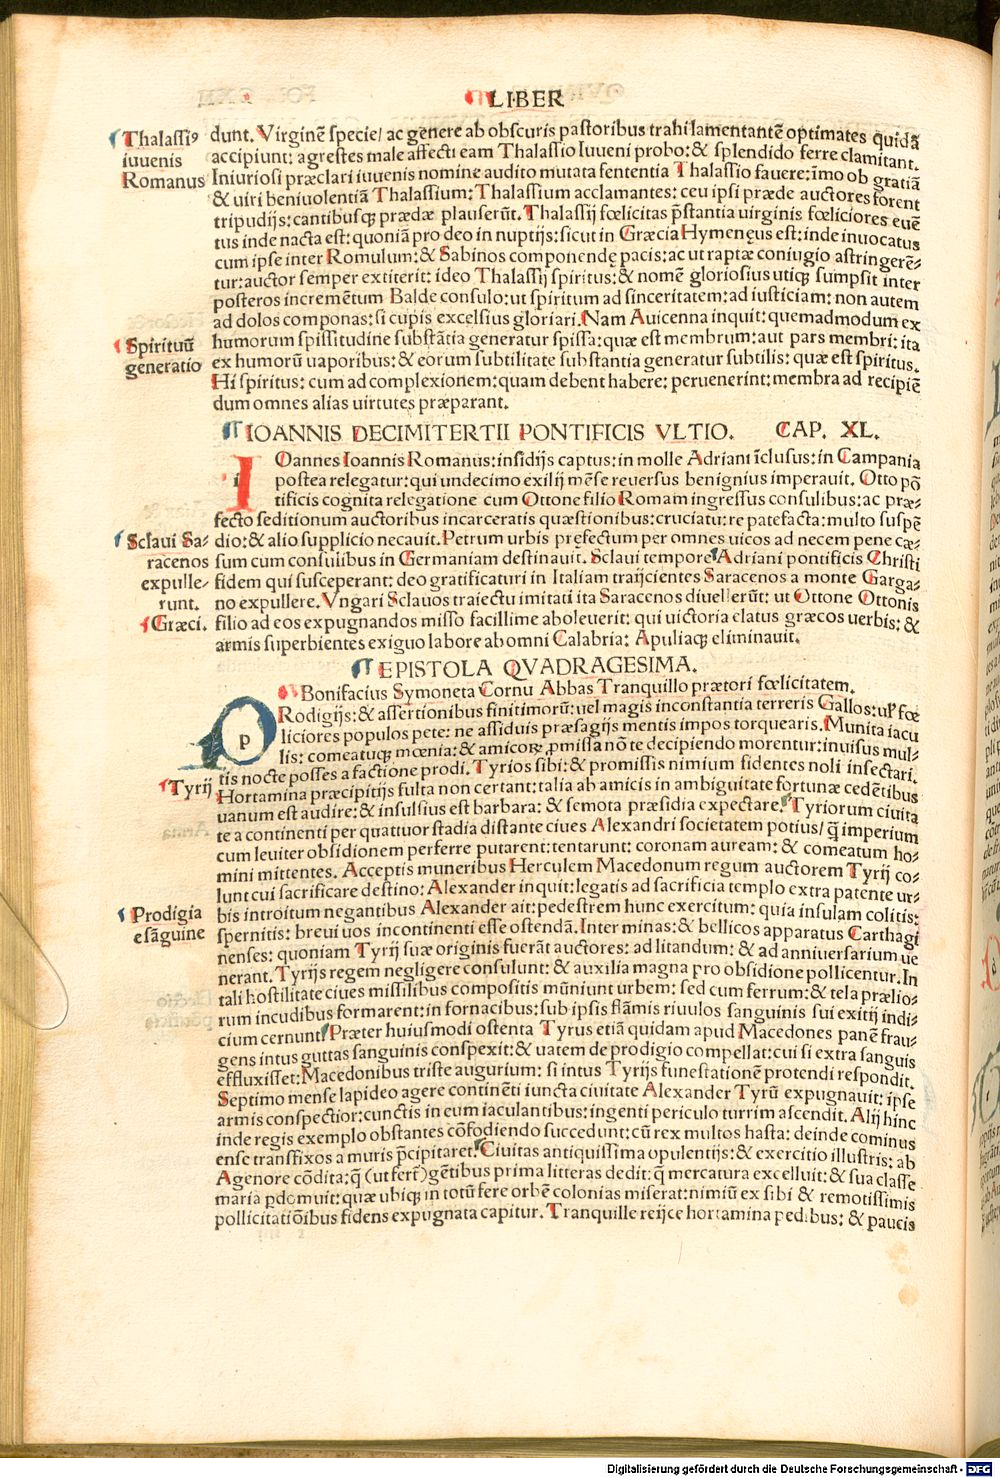 LIBER
Thalassi⁹
iuuenis
Romanus
dunt. Virginē specie/ ac genere ab obscuris pastoribus trahi lamentantē optimates quidā
accipiunt: agrestes male affecti eam Thalassio Iuueni probo: & splendido ferre clamitant.
Iniuriosi præclari iuuenis nomine audito mutata sententia Thalassio fauere: īmo ob gratiā
& uiri beniuolentiā Thalassium: Thalassium acclamantes: ceu ipsi præde auctores forent
tripudijs: cantibusqꝫ prædæ plauserūt. Thalassij fœlicitas p̄stantia uirginis fœliciores euē
tus inde nacta est: quoniā pro deo in nuptijs: sicut in Græcia Hymenęus est: inde inuocatus
cum ipse inter Romulum: & Sabinos componendę pacis: ac ut raptæ coniugio astringerē-
tur: auctor semper extiterit: ideo Thalassij spiritus: & nomē gloriosius utiqꝫ sumpsit inter
posteros incremētum Balde consulo: ut spiritum ad sinceritatem: ad iusticiam: non autem
ad dolos componas: si cupis excelsius gloriari. Nam Auicenna inquit: quemadmodum ex
Spirituū
generatio
humorum spissitudine substātia generatur spissa: quæ est membrum: aut pars membri: ita
ex humorū uaporibus: & eorum subtilitate substantia generatur subtilis: quæ est spiritus.
Hi spiritus: cum ad complexionem: quam debent habere: peruenerint: membra ad recipiē
dum omnes alias uirtutes præparant.
IOANNIS DECIMITERTII PONTIFICIS VLTIO. CAP. XL.
IOannes Ioannis Romanus: insidijs captus: in molle Adriani īclusus: in Campania
postea relegatur: qui undecimo exilij mēse reuersus benignius imperauit. Otto pō
tificis cognita relegatione cum Ottone filio Romam ingressus consulibus: ac præ-
fecto seditionum auctoribus incarceratis quæstionibus: cruciatu: re patefacta: multo suspē
Sclaui Sa-
racenos
expulle-
runt.
Græci.
dio: & alio supplicio necauit. Petrum urbis pręfectum per omnes uicos ad necem pene cæ-
sum cum consulibus in Germaniam destinauit. Sclaui tempore Adriani pontificis Christi
fidem qui susceperant: deo gratificaturi in Italiam traijcientes Saracenos a monte Garga-
no expullere. Vngari Sclauos traiectu imitati ita Saracenos diuellerūt: ut Ottone Ottonis
filio ad eos expugnandos misso facillime aboleuerit: qui uictoria elatus græcos uerbis: &
armis superbientes exiguo labore ab omni Calabria: Apuliaqꝫ eliminauit.
EPISTOLA QVADRAGESIMA.
Bonifacius Symoneta Cornu Abbas Tranquillo prætori fœlicitatem.
pRodigijs: & assertionibus finitimorū: uel magis inconstantia terreris Gallos: ul' fœ
liciores populos pete: ne assiduis præsagijs mentis impos torquearis. Munita iacu
lis: comeatuqꝫ mœnia: & amicoꝝ ꝓmissa nō te decipiendo morentur: inuisus mul-
tis nocte posses a factione prodi. Tyrios sibi: & promissis nimium fidentes noli insectari.
Tyrij
Hortamina præcipitijs fulta non certant: talia ab amicis in ambiguitate fortunæ cedētibus
uanum est audire: & insulsius est barbara: & semota præsidia expectare. Tyriorum ciuita
te a continenti per quattuor stadia distante ciues Alexandri societatem potius/ q̄ imperium
cum leuiter obsidionem perferre putarent: tentarunt: coronam auream: & comeatum ho-
mini mittentes. Acceptis muneribus Herculem Macedonum regum auctorem Tyrij co-
lunt cui sacrificare destino: Alexander inquit: legatis ad sacrificia templo extra patente ur-
Prodigia
e sāguine
bis introitum negantibus Alexander ait: pedestrem hunc exercitum: quia insulam colitis:
spernitis: breui uos incontinenti esse ostendā. Inter minas: & bellicos apparatus Carthagi
nenses: quoniam Tyrij suæ originis fuerāt auctores: ad litandum: & ad anniuersarium ue
nerant. Tyrijs regem negligere consulunt: & auxilia magna pro obsidione pollicentur. In
tali hostilitate ciues missilibus compositis mūniunt urbem: sed cum ferrum: & tela prælio-
rum incudibus formarent: in fornacibus: sub ipsis flāmis riuulos sanguinis sui exitij indi-
cium cernunt Præter huiusmodi ostenta Tyrus etiā quidam apud Macedones panē frau-
gens intus guttas sanguinis conspexit: & uatem de prodigio compellat: cui si extra sanguis
effluxisset: Macedonibus triste augurium: si intus Tyrijs funestationē protendi respondit.
Septimo mense lapideo agere continēti iuncta ciuitate Alexander Tyrū expugnauit: ipse
armis conspectior: cunctis in eum iaculantibus: ingenti periculo turrim ascendit. Alij hinc
inde regis exemplo obstantes cōfodiendo succedunt: cū rex multos hasta: deinde cominus
ense transfixos a muris p̄cipitaret. Ciuitas antiquissima opulentijs: & exercitio illustris: ab
Agenore cōdita: q̄ (ut fert̄) gētibus prima litteras dedit: q̄ mercatura excelluit: & sua classe
maria ꝑdomuit: quæ ubiqꝫ in totū fere orbē colonias miserat: nimiū ex sibi & remotissimis
pollicitatiōibus fidens expugnata capitur. Tranquille reijce hortamina pedibus: & paucis
Digitalisierung gefördert durch die Deutsche Forschungsgemeinschaft - DFG